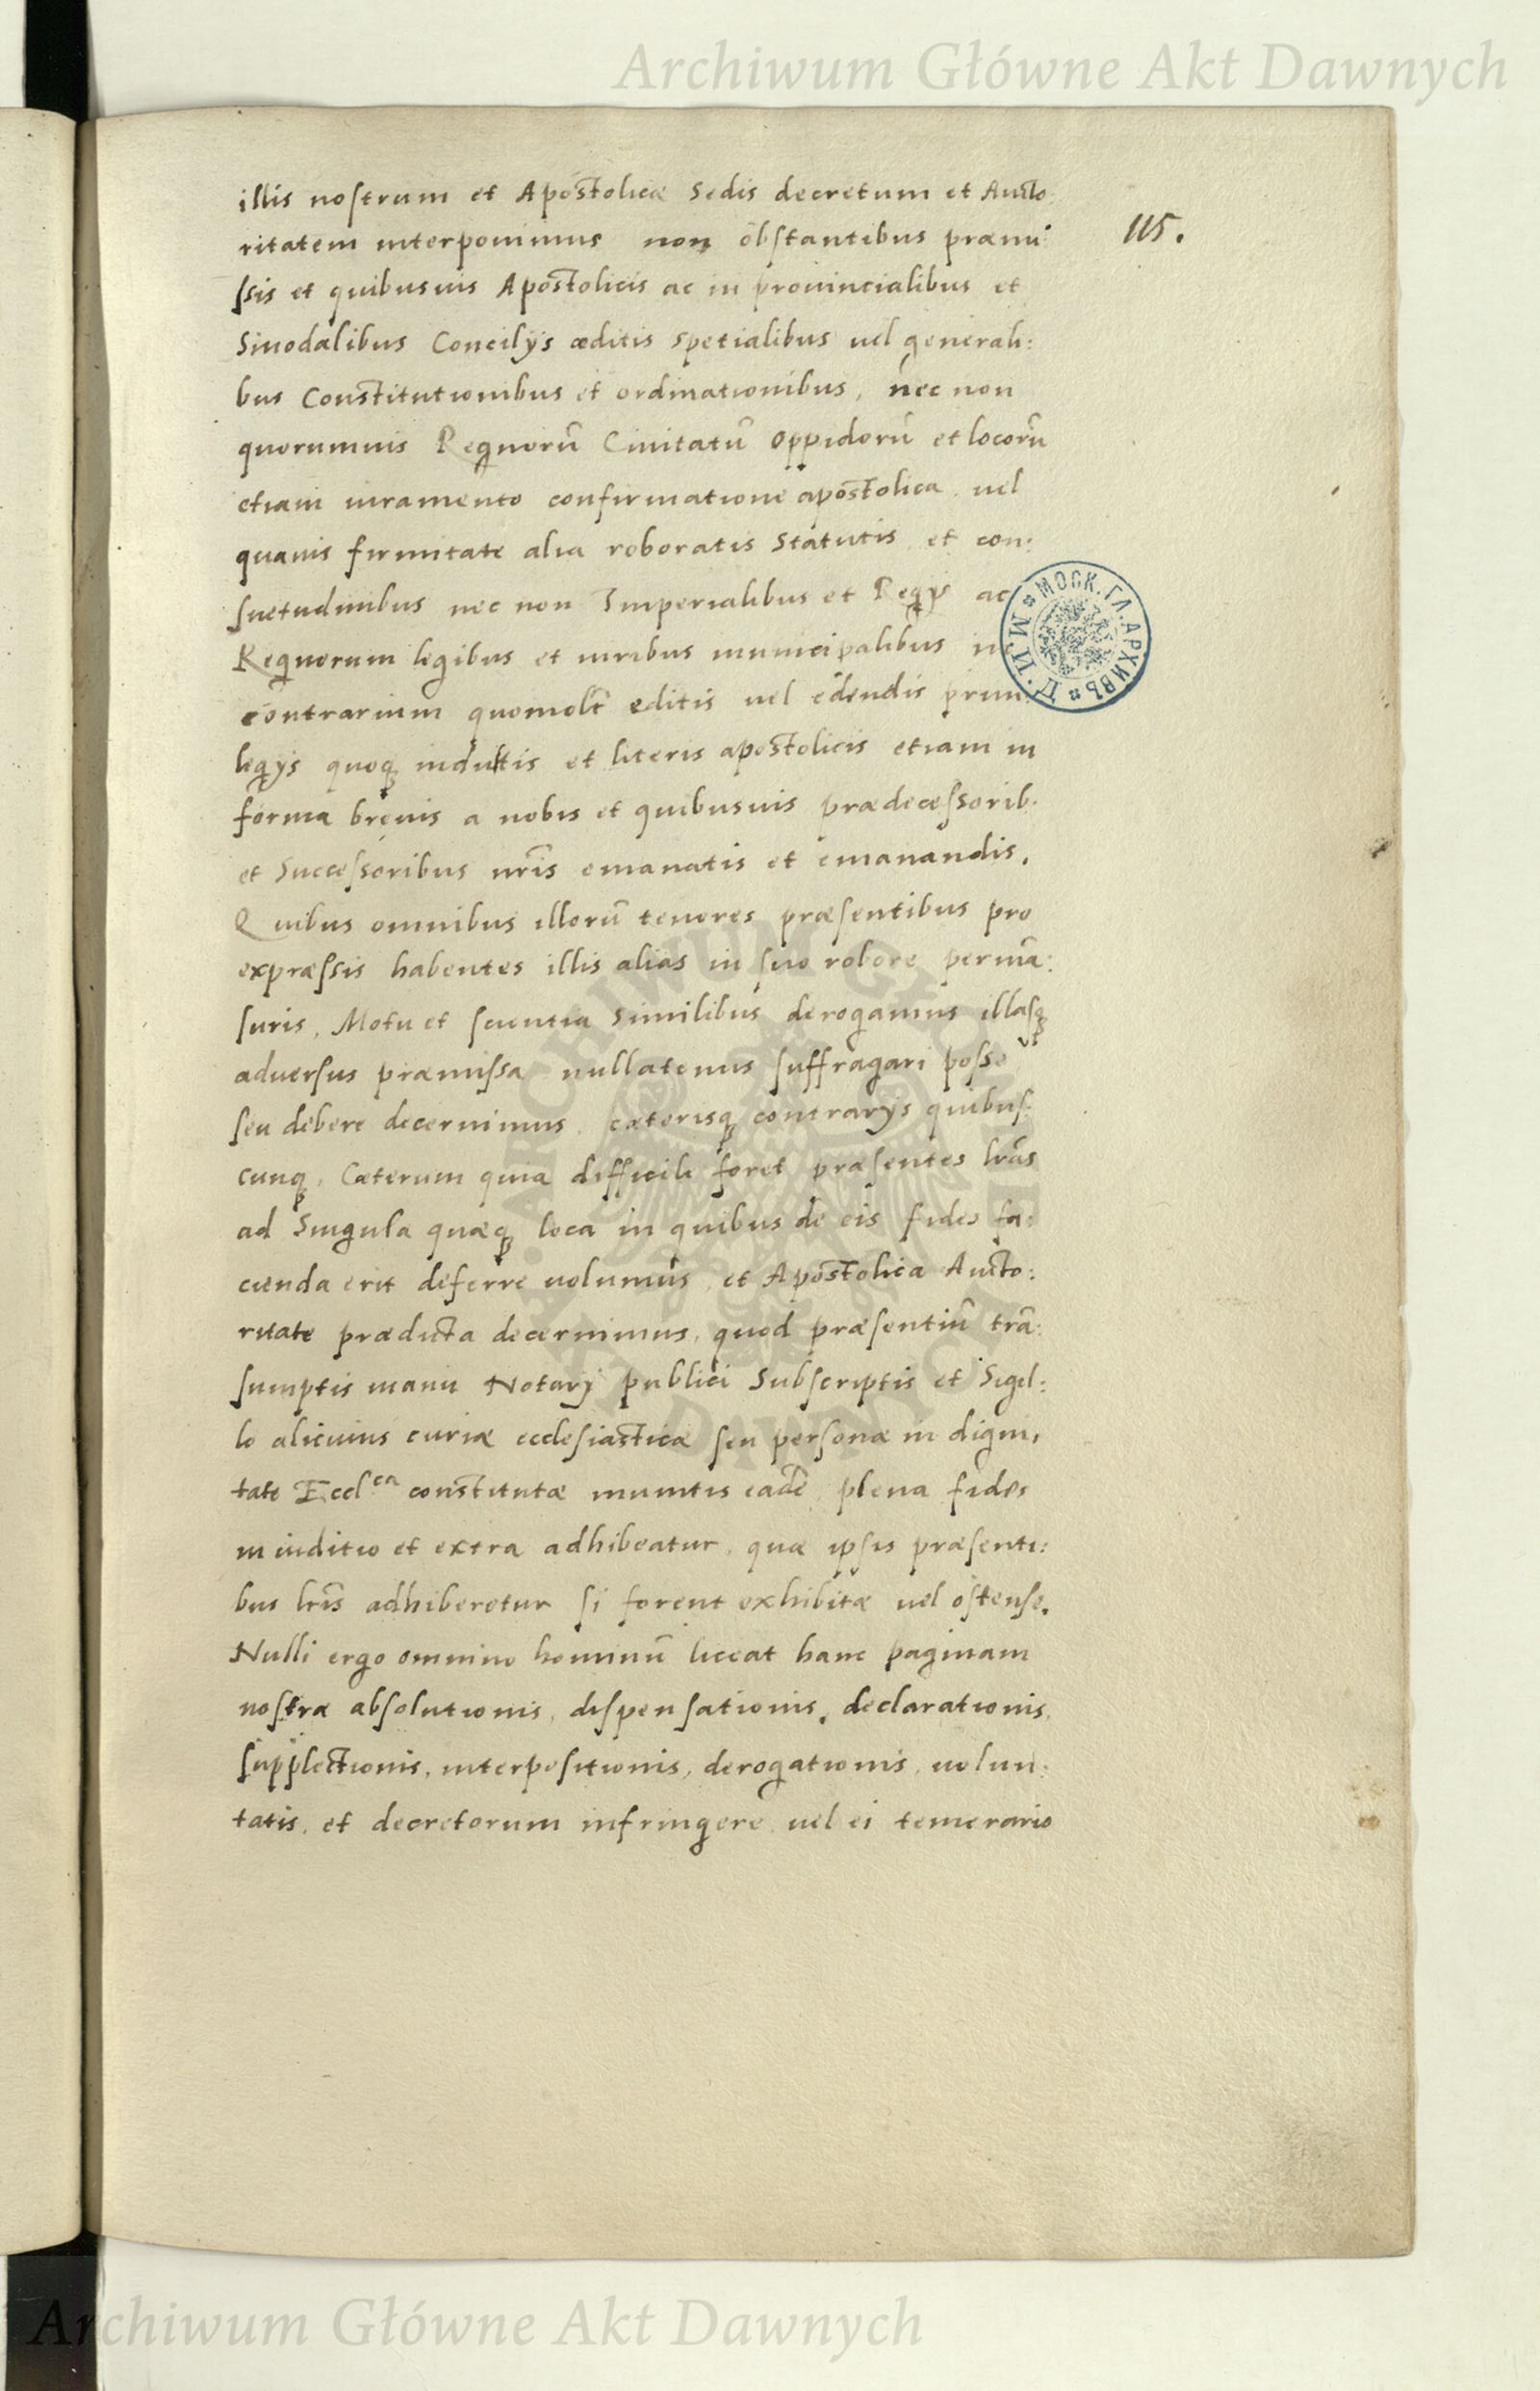 Archiwum Główne Akt Dawnych
illis nostrum et Apostolicæ Sedis decretum et Aucto
115.
ritatem interponimus non obstantibus præmi:
ssis et quibusuis Apostolicis ac in prouincialibus et
Sinodalibus Concilijs æditis spetialibus uel generali:
bus Constitutionibus et ordinationibus, nec non
quorumuis Regnorũ Ciuitatũ oppidorũ et locorũ
etiam iuramento confirmatione apostolica uel
quauis firmitate alia roboratis Statutis et con:
suetudinibus nec non Imperialibus et Regijs ac
МОСК. ГЛ. АРХИВЪ М.И.Д.
Regnorum legibus et iuribus municipalibus in
contrarium quomolt̃ editis uel edendis priui
legijs quoqȝ indultis et literis apostolicis etiam in
forma breuis a nobis et quibusuis prædecessorib.
et Successoribus nr̃is emanatis et emanandis.
Quibus omnibus illorũ tenores præsentibus pro
expræssis habentes illis alias in suo robore permã:
suris, Motu et scientia Similibus derogamus illasqȝ
aduersus præmissa nullatenus suffragari posse ut
seu debere decernimus cæterisqȝ contrarijs quibus:
cunqȝ. Cæterum quia difficili foret præsentes lr̃as
ad Singula quæqȝ loca in quibus de eis fides fa:
cienda erit deferre uolumus et Apostolica Aucto:
ritate prædicta decernimus, quod præsentiũ trã:
sumptis manu Notarij publici Subscriptis et Sigil:
lo alicuius curiæ ecclesiasticæ seu personæ in digni,
tate Eccl^ca constitutæ munitis eadẽ plena fides
in iuditio et extra adhibeatur, quæ ipsis præsenti:
bus lr̃is adhiberetur si forent exhibitæ uel ostense.
Nulli ergo omnino hominũ liceat hanc paginam
nostræ absolutionis, dispensationis, declarationis,
supplectionis, interpositionis, derogationis, uolun:
tatis, et decretorum infringere uel ei temerario
ARCHIWUM GŁÓWNE AKT DAWNYCH
Archiwum Główne Akt Dawnych